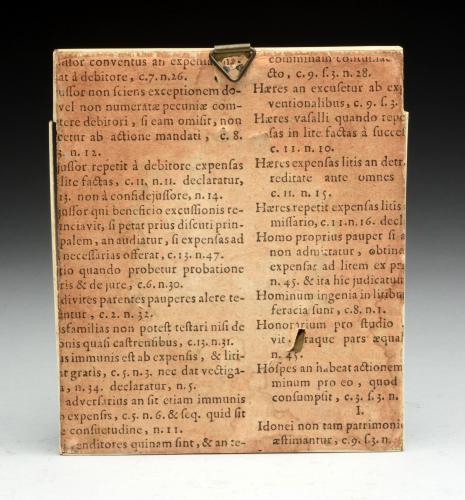 jussor conventus an expensa
at à debitore, c. 7. n. 26.
jussor non sciens exceptionem do-
vel non numeratæ pecuniæ com-
tere debitori, si eam omisit, non
cetur ab actione mandati, c. 8.
3. n. 12.
jussor repetit à debitore expensas
lite factas, c. 11. n. 11. declaratur,
13. non à confidejussore, n. 14.
jussor qui beneficio excussionis re-
nciavit, si petat prius discuti prin-
palem, an audiatur, si expensas ad
necessarias offerat, c. 13. n. 47.
tio quando probetur probatione
ris & de jure, c. 6. n. 30.
divites parentes pauperes alere te-
ntur, c. 2. n. 32.
sfamilias non potest testari nisi de
onis quasi castrensibus, c. 13. n. 31.
us immunis est ab expensis, & liti-
at gratis, c. 5. n. 3. nec dat vectiga-
, n. 34. declaratur, n. 5.
adversarius an sit etiam immunis
expensis, c. 5. n. 6. & seq. quid sit
e consuetudine, n. 11.
enditores quinam sint, & an te-
cto, c. 9. s. 3. n. 28.
Hæres an excusetur ab ex
ventionalibus, c. 9. s. 3.
Hæres vasalli quando repe
sas in lite factas à succes
c. 11. n. 10.
Hæres expensas litis an detr
reditate ante omnes
c. 11. n. 15.
Hæres repetit expensas litis
missario, c. 11. n. 16. decl
Homo proprius pauper si a
non admittatur, obtine
expensas ad litem ex pr
n. 45. & ita hic judicatur
Hominum ingenia in litibu
feracia sunt, c. 8. n. 1.
Honorarium pro studio
vit, raque pars æqual
n. 45.
Hospes an habeat actionem
minum pro eo, quod
consumpsit, c. 3. s. 3. n.
I.
Idonei non tam patrimoni
æstimantur, c. 9. s. 3. n.